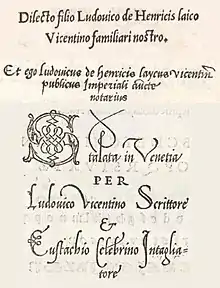 Dilecto filio Ludovico de Henricis laico
Vicentino familiari nostro.
Et ego ludovicus de henricis laycus vicentin9
publicus Imperiali aucte
notarius
Stapata in Venetia
PER
Ludovico Vicentino Scrittore
&
Eustachio Celebrino Intaglia-
tore